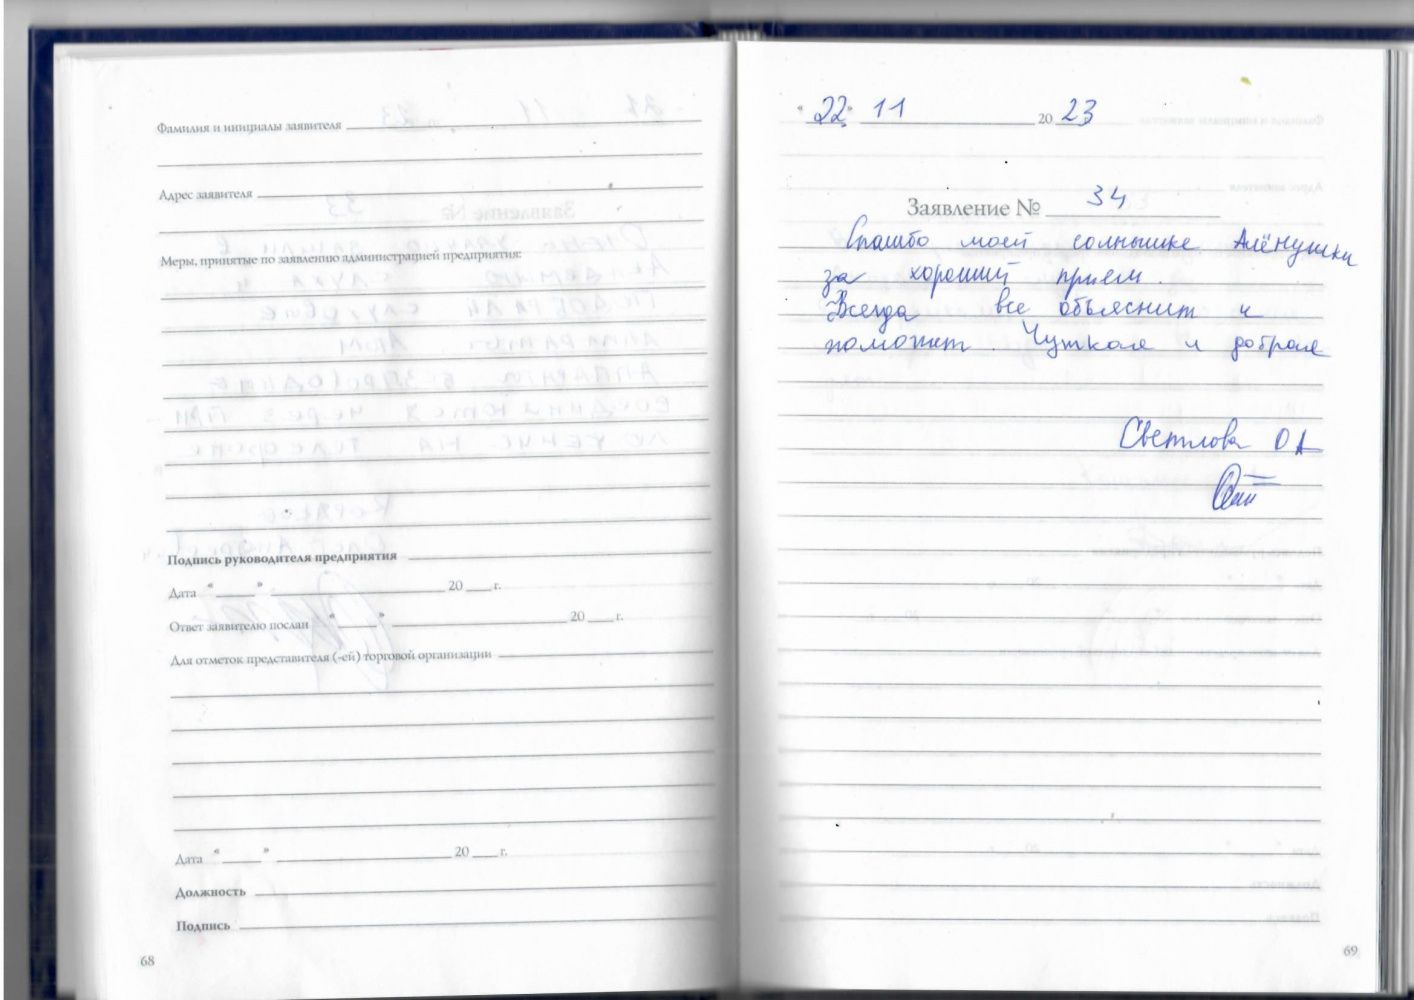 Фамилия и инициалы заявителя
Адрес заявителя
Меры, принятые по заявлению администрацией предприятия:
Подпись руководителя предприятия
Дата « » 20 г.
Ответ заявителю послан « » 20 г.
Для отметок представителя (-ей) торговой организации
Дата « » 20 г.
Должность
Подпись
68
«22» 11 2023
Заявление № 34
Спасибо моей солнышке Алёнушки
за хороший прием.
Всегда все объяснит и
поможет. Чуткая и добрая
Светлова ОА
69